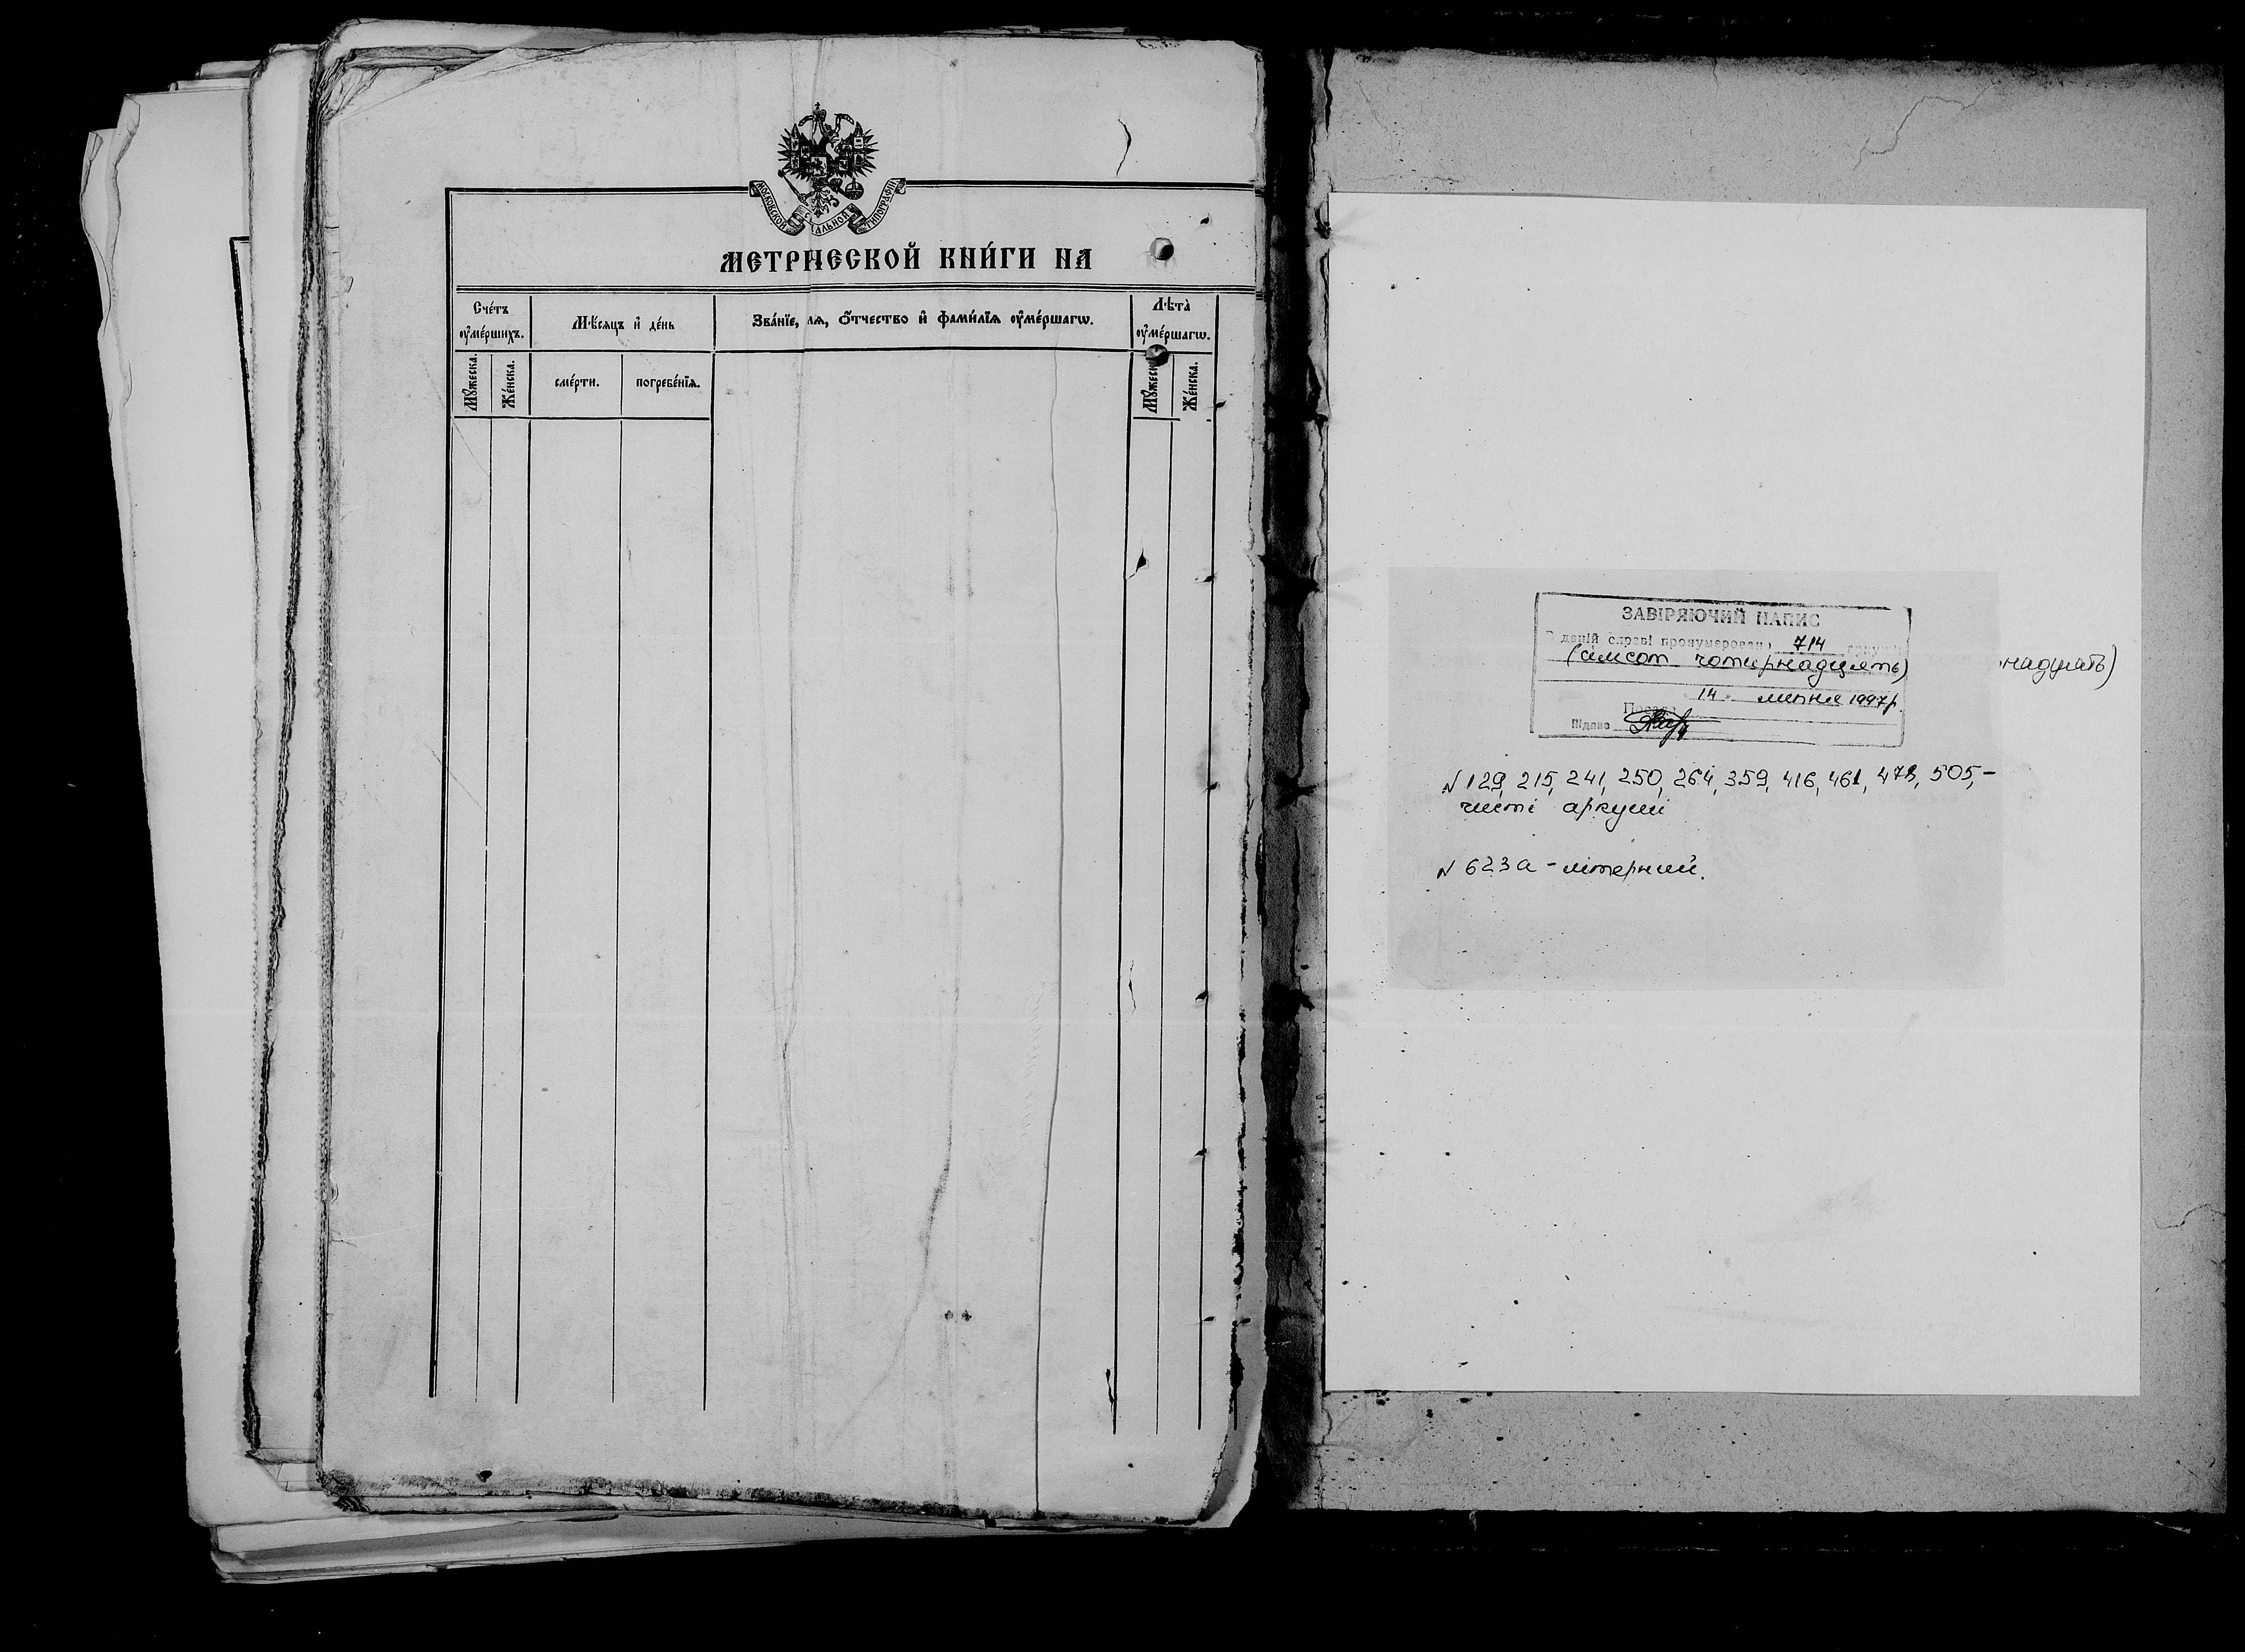 МОСКОВСКОЙ
АЛЬНОЙ
ТИПОГРАФІИ
МЕТРИЧЕСКОЙ КНИ́ГИ НА
Сче́тъ
ᲂу҆ме́ршихъ.
Мѣ́сяцъ и҆ де́нь
Зва́нїе, мѧ, ѻ҆́тчество и҆ фами́лїѧ ᲂу҆ме́ршагѡ.
Лѣта̀
ᲂу҆ме́ршагѡ.
Мꙋ́жеска.
Же́нска.
сме́рти.
погребе́нїѧ.
Мꙋ́жеск
Же́нска.
ЗАВІРЯЮЧИЙ НАПИС
В даній справі пронумеровані 714
(сімсот чотирнадцять)
надцять)
14 липня 1997р.
Посада
Підпис
N 129, 215, 241, 250, 264, 359, 416, 461, 478, 505, –
чисті аркуші
N 623а – літерний.